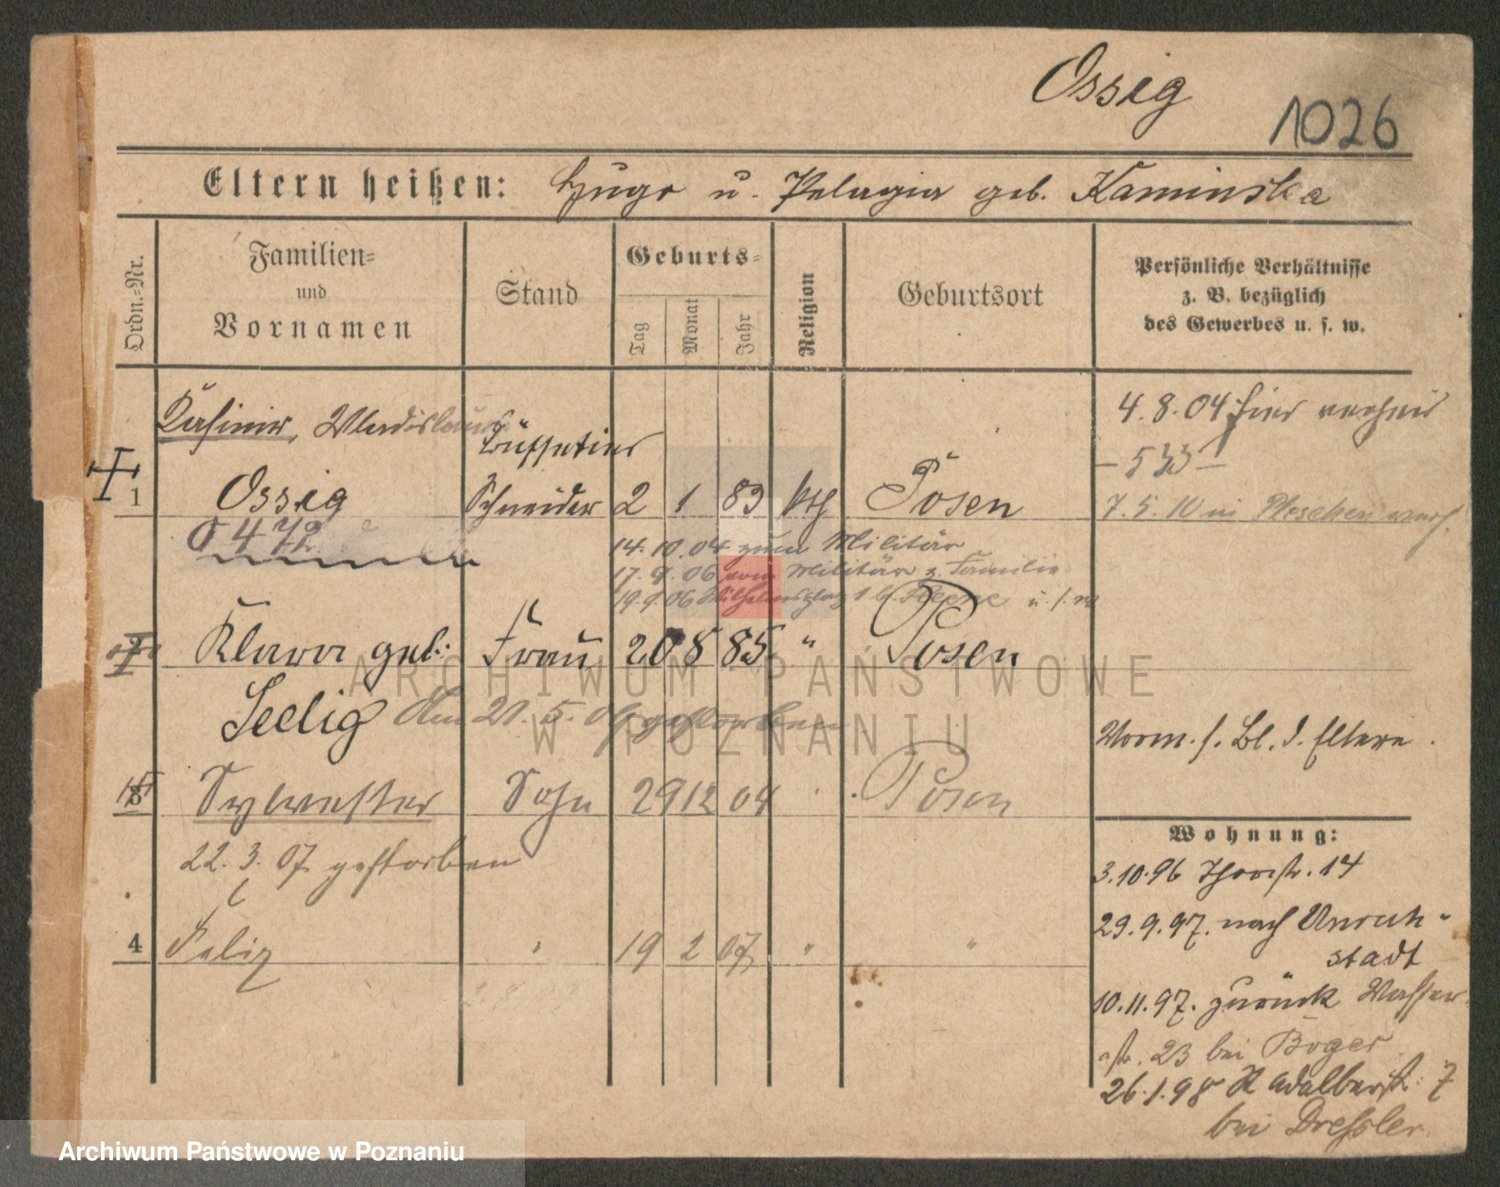 Ossig
1026
Eltern heißen: Hugo u. Pelagia geb. Kaminska
Ordn.-Nr.
Familien-
und
Vornamen
Stand
Geburts-
Tag
Monat
Jahr
Religion
Geburtsort
Persönliche Verhältnisse
z. B. bezüglich
des Gewerbes u. s. w.
Kasimir, Wladislaus
Büffetier
1 Ossig Schneider 2 1 83 kth Posen
4.8.04 hier
- 533 -
7.5.10 in Pleschen
472
14.10.04 zum Militär
17.9.06 vom Militär z. Familie
19.9.06 Wilhelmsplatz u. s. w
2 Klara geb. Frau 20 8 85 " Posen
Seelig Am 21.5.09 gestorben
Vorm. s. Bl. d. Eltern.
3 Sylwester Sohn 29 12 04 Posen
22.3.07 gestorben
4 Felix 19 2 07 " "
Wohnung:
3.10.96 Thorstr. 14
29.9.97. nach Unruh-
stadt
10.11.97. zurück Wasser-
str. 23 bei Boger
26.1.98 Adalbertstr. 7
bei Dressler.
ARCHIWUM PAŃSTWOWE
W POZNANIU
Archiwum Państwowe w Poznaniu